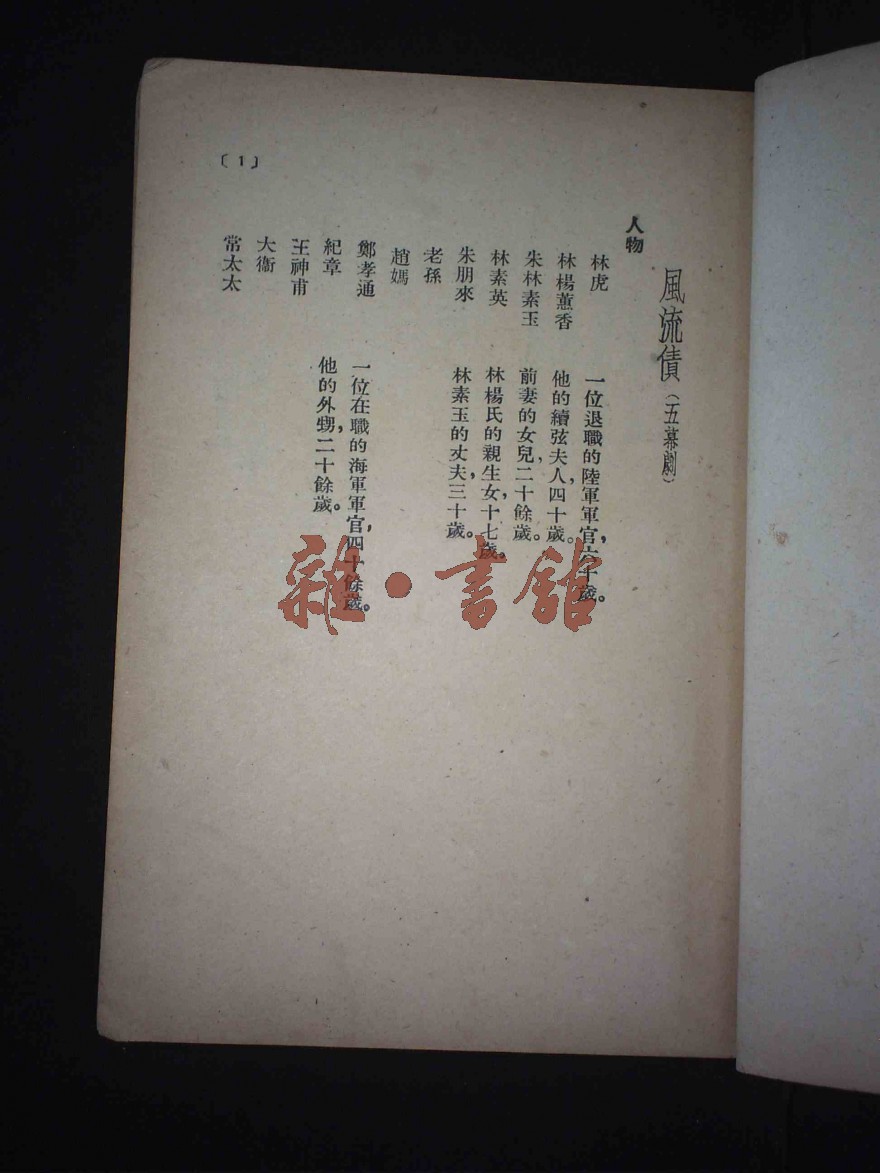 風流債（五幕劇）
人物
林虎　一位退職的陸軍軍官，六十歲。
林楊薰香　他的續弦夫人，四十歲。
朱林素玉　前妻的女兒，二十餘歲。
林素英　林楊氏的親生女，十七歲。
朱朋來　林素玉的丈夫，三十歲。
老孫
趙媽
鄭孝通　一位在職的海軍軍官，四十餘歲。
紀章　他的外甥，二十餘歲。
王神甫
大衞
常太太
〔1〕
雜·書館